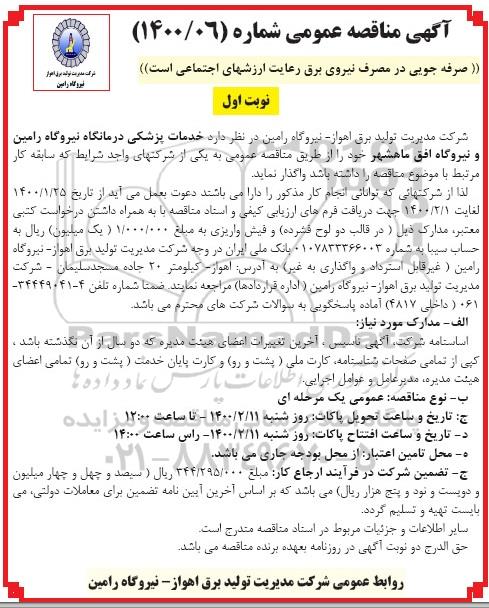 آگهی مناقصه عمومی شماره (۱۴۰۰/۰۶)
شرکت مدیریت تولید برق اهواز
نیروگاه رامین
(( صرفه جویی در مصرف نیروی برق رعایت ارزشهای اجتماعی است))
نوبت اول
شرکت مدیریت تولید برق اهواز- نیروگاه رامین در نظر دارد خدمات پزشکی درمانگاه نیروگاه رامین
و نیروگاه افق ماهشهر خود را از طریق مناقصه عمومی به یکی از شرکتهای واجد شرایط که سابقه کار
مرتبط با موضوع مناقصه را داشته باشد واگذار نماید.
لذا از شرکتهائی که توانائی انجام کار مذکور را دارا می باشند دعوت بعمل می آید از تاریخ ۱۴۰۰/۱/۲۵
لغایت ۱۴۰۰/۲/۱ جهت دریافت فرم های ارزیابی کیفی و اسناد مناقصه با به همراه داشتن درخواست کتبی
معتبر، مدارک ذیل ( در قالب دو لوح فشرده) و فیش واریزی به مبلغ ۱/۰۰۰/۰۰۰ ( یک میلیون) ریال به
حساب سیبا به شماره ۰۱۰۷۸۳۳۳۶۶۰۰۳ بانک ملی ایران در وجه شرکت مدیریت تولید برق اهواز- نیروگاه
رامین ( غیرقابل استرداد و واگذاری به غیر) به آدرس: اهواز- کیلومتر ۲۰ جاده مسجدسلیمان - شرکت
مدیریت تولید برق اهواز- نیروگاه رامین ( اداره قراردادها) مراجعه نمایند. ضمنا شماره تلفن ۴-۳۴۴۴۹۰۴۱-
۰۶۱ ( داخلی ۴۸۱۷) آماده پاسخگویی به سوالات شرکت های محترم می باشد.
الف- مدارک مورد نیاز:
اساسنامه شرکت، آگهی تاسیس ، آخرین تغییرات اعضای هیئت مدیره که دو سال از آن نگذشته باشد ،
کپی از تمامی صفحات شناسنامه، کارت ملی ( پشت و رو) و کارت پایان خدمت ( پشت و رو) تمامی اعضای
هیئت مدیره، مدیرعامل و عوامل اجرایی.
ب- نوع مناقصه: عمومی یک مرحله ای
ج: تاریخ و ساعت تحویل پاکات: روز شنبه ۱۴۰۰/۲/۱۱ - تا ساعت ۱۲:۰۰
د- تاریخ و ساعت افتتاح پاکات: روز شنبه ۱۴۰۰/۲/۱۱- راس ساعت ۱۴:۰۰
ه- محل تامین اعتبار: از محل بودجه جاری می باشد.
ج- تضمین شرکت در فرآیند ارجاع کار: مبلغ ۳۴۴/۲۹۵/۰۰۰ ریال ( سیصد و چهل و چهار میلیون
و دویست و نود و پنج هزار ریال) می باشد که بر اساس آخرین آیین نامه تضمین برای معاملات دولتی، می
بایست تهیه و تسلیم گردد.
سایر اطلاعات و جزئیات مربوط در اسناد مناقصه مندرج است.
حق الدرج دو نوبت آگهی در روزنامه بعهده برنده مناقصه می باشد.
روابط عمومی شرکت مدیریت تولید برق اهواز- نیروگاه رامین